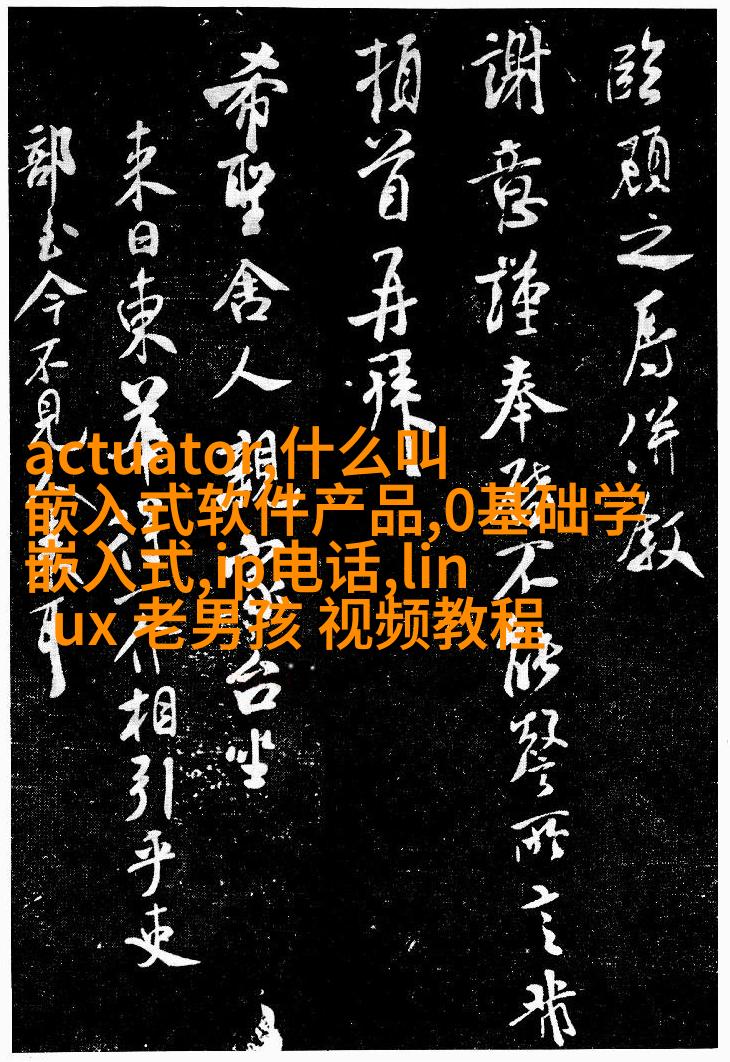 臨顧之併
謝意謹奉啓不能罄所言
頓首再拜
希聖舍人親家台坐
来日東介相引乎吏
部至今不見耳
actuator,什么叫
嵌入式软件产品,0基础学
嵌入式,ip电话,lin
ux 老男孩 视频教程